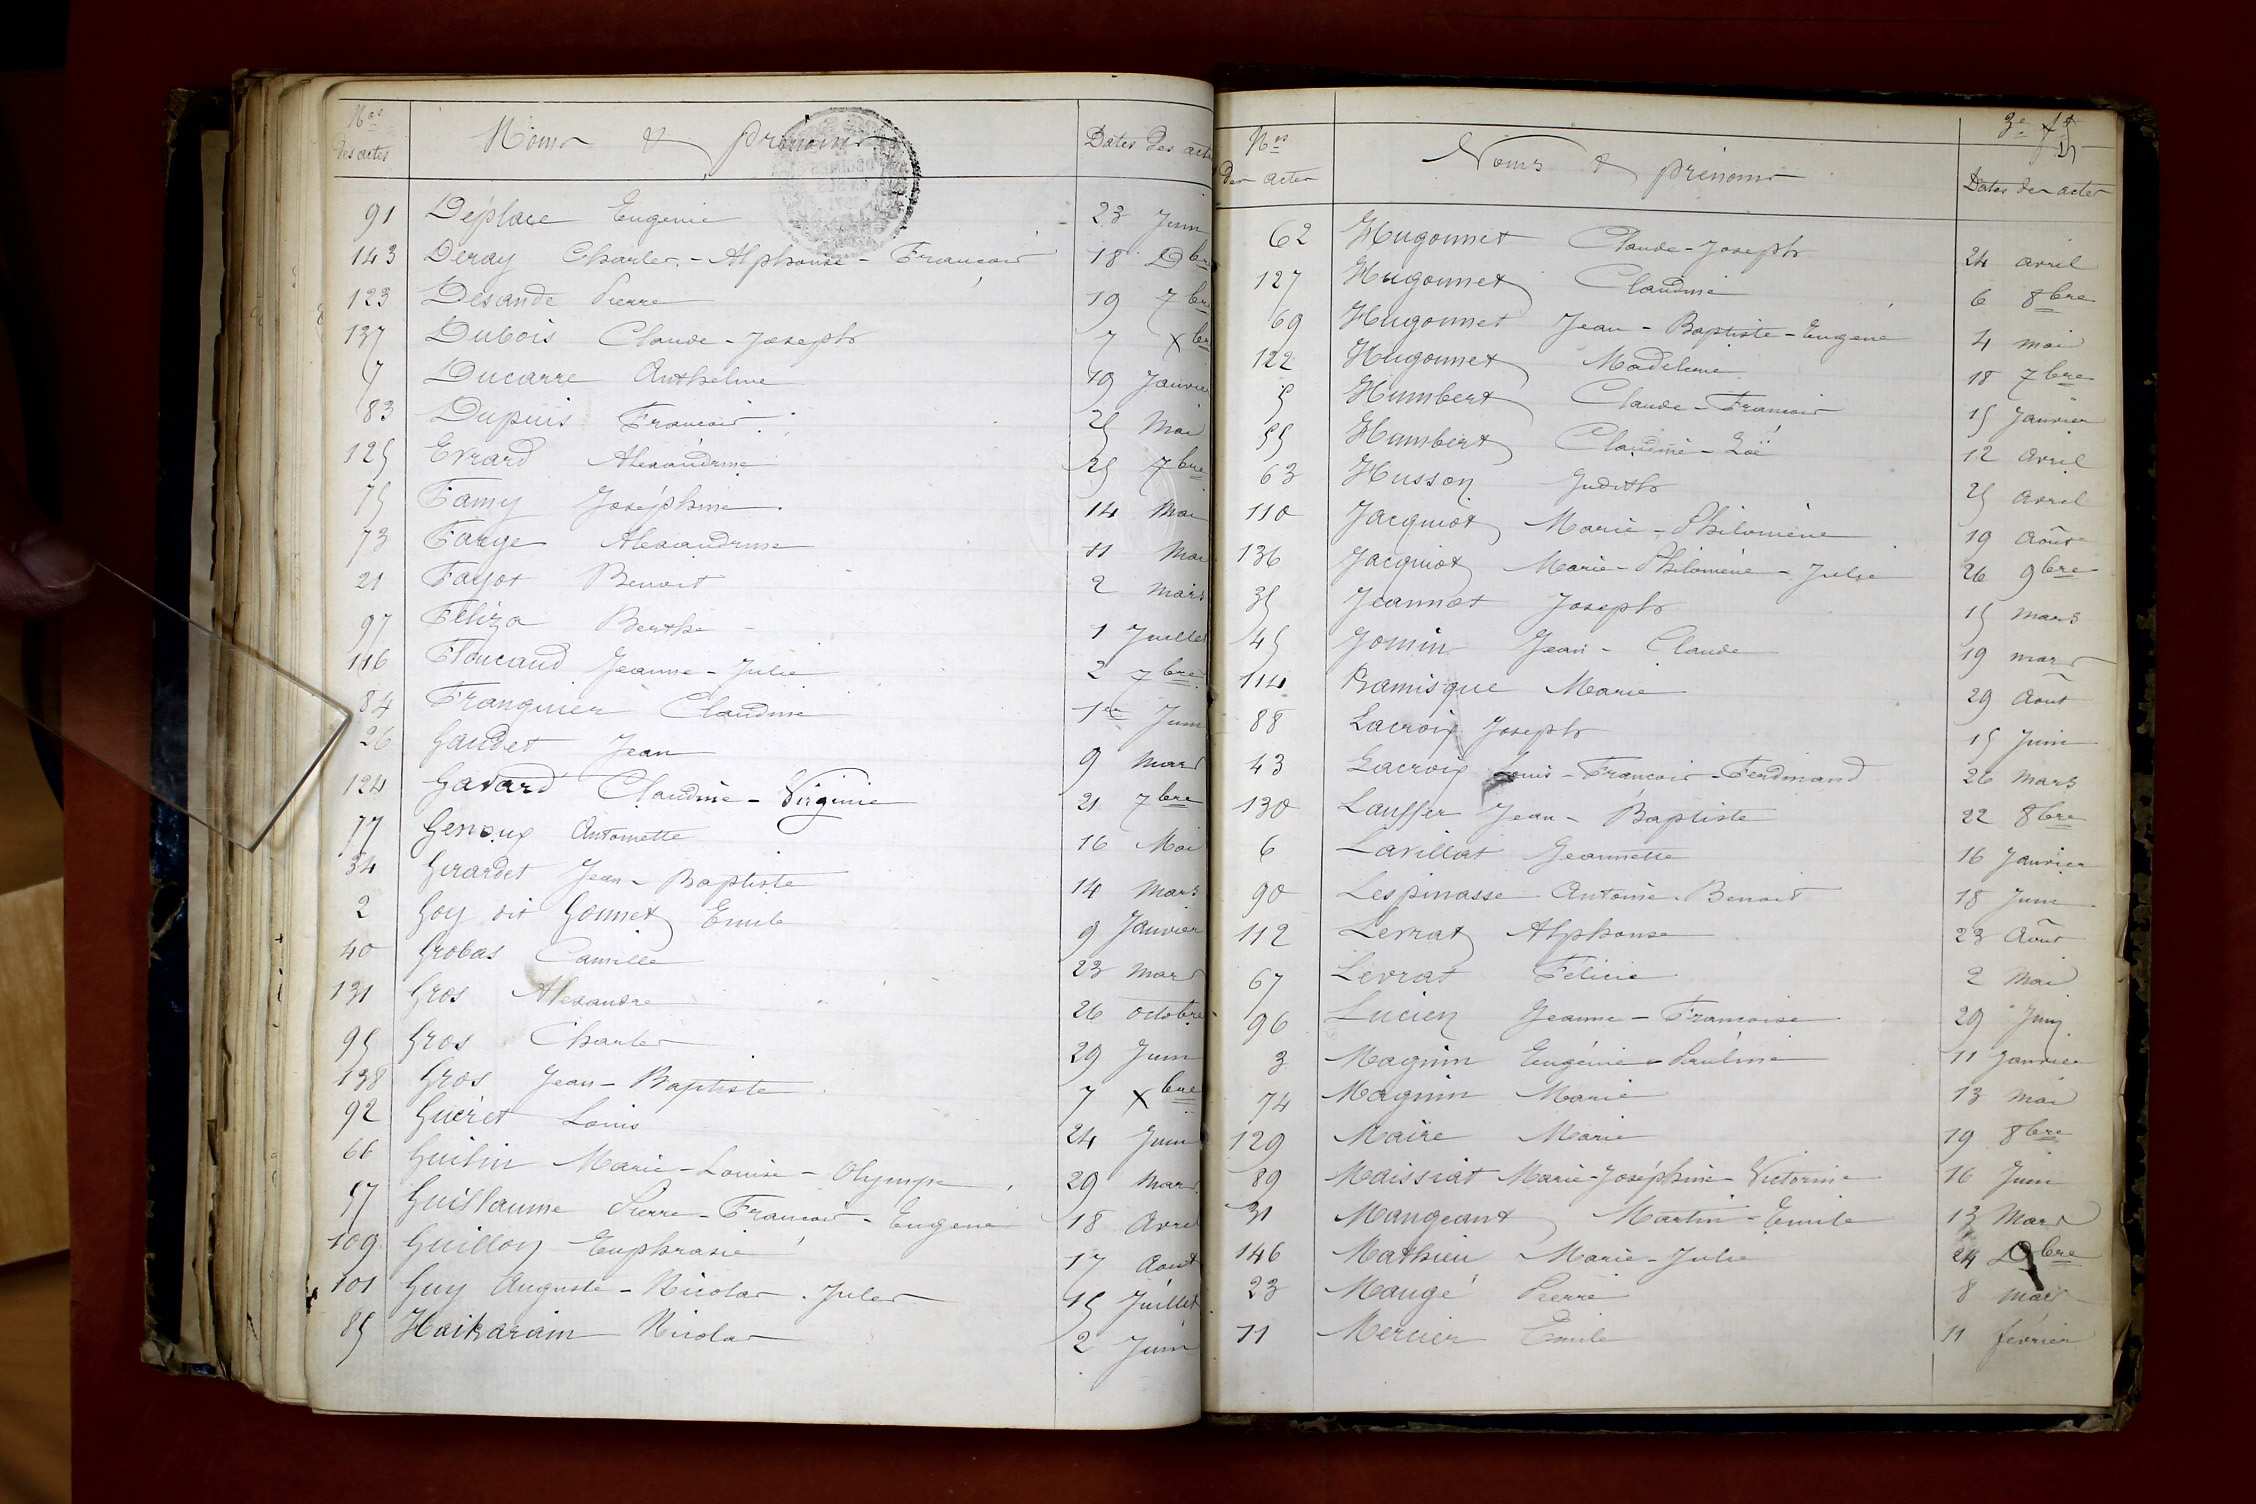 Nos des actes Noms & prénoms Dates des actes
91 Déplace Eugénie 23 Juin
143 Deray Charles-Alphonse-François 18 Dbre
123 Desande Pierre 19 7bre
137 Dubois Claude-Joseph 7 Xbre
7 Ducarre Anthelme 19 Janvier
83 Dupuis François 25 Mai
125 Evrard Alexandrine 25 7bre
75 Famy Joséphine 14 Mai
73 Farge Alexandrine 11 Mai
21 Fayot Benoit 2 Mars
97 Féliza Berthe 1 Juillet
116 Floucaud Jeanne-Julie 2 7bre
84 Franguier Claudine 1er Juin
26 Gaudet Jean 9 Mars
124 Gavard Claudine-Virginie 21 7bre
77 Genoux Antoinette 16 Mai
34 Girardet Jean-Baptiste 14 Mars
2 Goy dit Gonnet Emile 9 Janvier
40 Grobas Camille 23 Mars
131 Gros Alexandre 26 octobre
95 Gros Charles 29 Juin
138 Gros Jean-Baptiste 7 Xbre
92 Guéret Louis 24 Juin
66 Guilin Marie-Louise-Olympe 29 Mars
57 Guillaume Pierre-François-Eugène 18 Avril
109 Guillon Euphrasie 17 Aout
101 Guy Auguste-Nicolas-Jules 15 Juillet
85 Haikarain Nicolas 2 Juin
3e ft
Nos des actes Noms & prénoms Dates des actes
62 Hugonnet Claude-Joseph 24 avril
127 Hugonnet Claudine 6 8bre
69 Hugonnet Jean-Baptiste-Eugène 4 mai
122 Hugonnet Madeleine 18 7bre
5 Humbert Claude-François 15 Janvier
55 Humbert Claudine-Zoë 12 avril
63 Husson Judith 25 avril
110 Jacquiot Marie-Philomène 19 Août
136 Jacquiot Marie-Philomène-Julie 26 9bre
35 Jeannot Joseph 15 mars
45 Jomin Jean-Claude 19 mars
114 Ramisque Marie 29 Août
88 Lacroix Joseph 15 Juin
43 Lacroix Louis-François-Ferdinand 26 Mars
130 Lauffer Jean-Baptiste 22 8bre
6 Lavillat Jeannette 16 Janvier
90 Lespinasse Antoine-Benoit 18 Juin
112 Levrat Alphonse 23 Août
67 Levrat Félicie 2 Mai
96 Lucien Jeanne-Françoise 29 Juin
3 Magnin Eugénie-Pauline 11 Janvier
74 Magnin Marie 13 mai
129 Maire Marie 19 8bre
89 Maissiat Marie-Joséphine-Victorine 16 Juin
31 Mangeant Martin-Emile 13 Mars
146 Mathieu Marie-Julie 24 Dbre
23 Maugé Pierre 8 mars
11 Mercier Emile 11 février